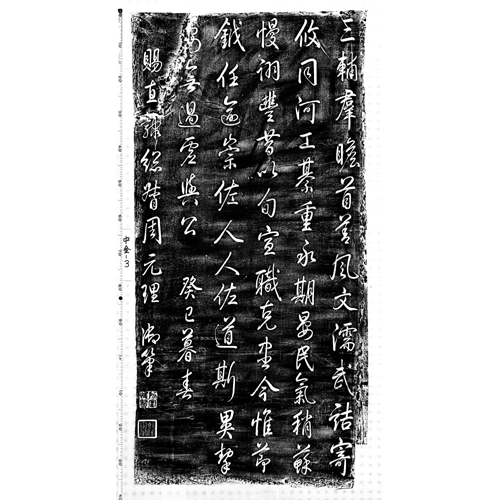 三輔羣瞻首善風文濡武詰寄
攸同河工綦重永期晏民氣稍蘇
慢詡豐昔以旬宣職克壹今惟節
鉞任逾崇佐人人佐道斯異挈
無過虛與公 癸巳暮春
賜直隸總督周元理 御筆
中金-3